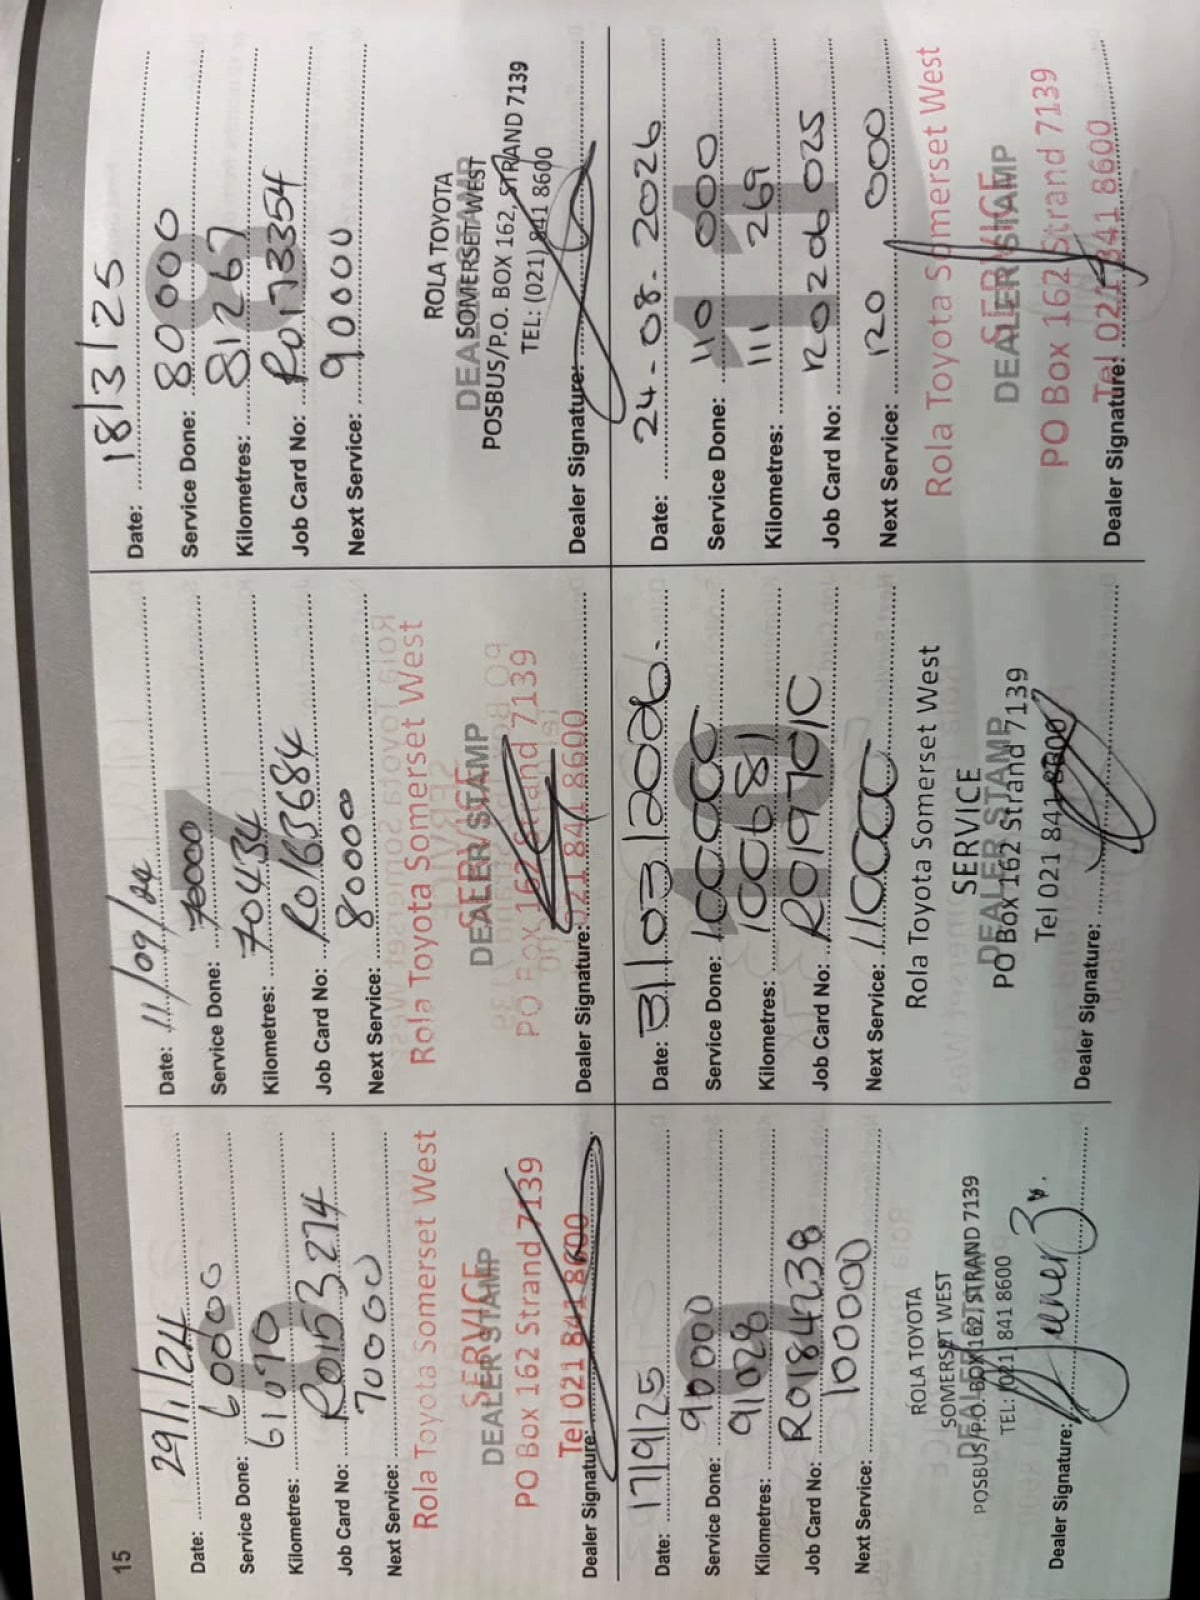 15
Date: 29/1/24
6
Service Done: 60000
Kilometres: 61070
Job Card No: R0153274
Next Service: 70000
Rola Toyota Somerset West
SERVICE
DEALER STAMP
PO Box 162 Strand 7139
Tel 021 841 8600
Dealer Signature:
Date: 11/09/24
7
Service Done: 70000
Kilometres: 70434
Job Card No: R0163684
Next Service: 80000
Rola Toyota Somerset West
SERVICE
DEALER STAMP
PO Box 162 Strand 7139
021 841 8600
Dealer Signature:
Date: 18/3/25
8
Service Done: 80000
Kilometres: 81267
Job Card No: R0173354
Next Service: 90000
ROLA TOYOTA
SOMERSET WEST
DEALER STAMP
POSBUS/P.O. BOX 162, STRAND 7139
TEL: (021) 841 8600
Dealer Signature:
Date: 17/9/25
9
Service Done: 90000
Kilometres: 91028
Job Card No: R0184238
Next Service: 100000
ROLA TOYOTA
SOMERSET WEST
DEALER STAMP
POSBUS/P.O. BOX 162, STRAND 7139
TEL: (021) 841 8600
Dealer Signature:
Date: 31/03/2026.
10
Service Done: 100000
Kilometres: 100681
Job Card No: R0197010
Next Service: 110000
Rola Toyota Somerset West
SERVICE
DEALER STAMP
PO Box 162 Strand 7139
Tel 021 841 8600
Dealer Signature:
Date: 24-08-2026
11
Service Done: 110 000
Kilometres: 111 269
Job Card No: R0206025
Next Service: 120 000
Rola Toyota Somerset West
SERVICE
DEALER STAMP
PO Box 162 Strand 7139
Tel 021 841 8600
Dealer Signature: